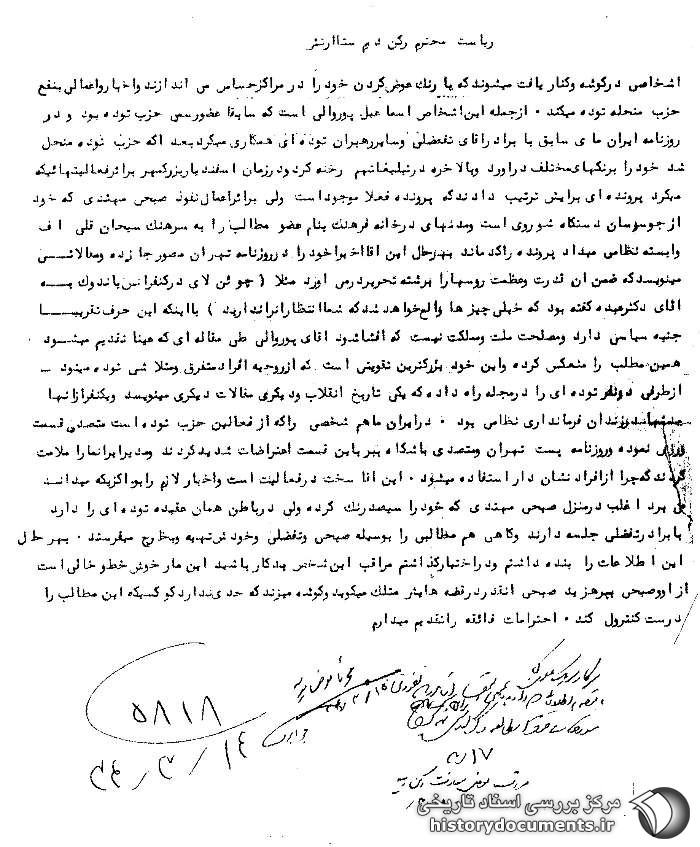 ریاست محترم رکن دوم ستاد ارتش
اشخاصی درگوشه وکنار یافت میشوندکه با رنگ عوض کردن خود را در مراکزحساس می اندازند واخبار واعمالی بنفع
حزب منحله توده میکند . ازجمله این اشخاص اسماعیل پوروالی است که سابقا عضورسمی حزب توده بود و در
روزنامه ایران مای سابق با برادرانای تفضلی وسایررهبران توده ای همکاری میکردبعد اکه حزب توده منحل
شد خودرا برنگهای مختلف دراورد وبالاخره درتبلیغاتهم رخنه کردودرزمان اسفندیاربزرکمهر براثرفعالیتهائیکه
میکرد پرونده ای برایش ترتیب دادندکه پرونده فعلا موجوداست ولی براثراعمال نفوذ صبحی مهتدی که خود
ازجوسوسان دستگاه شوروی است ومدتهای درخانه فرهنگ بنام عضو مطالب را به سرهنگ سبحان قلی اف
وابسته نظامی میداد پرونده راکدماند بهرحال این اقااخیراخودرا درروزنامه تهران مصورجا زده ومقالاتـــی
مینویسدکه ضمن ان قدرت وعظمت روسهارا برشته تحریردرمی اورد مثلا ( چوئن لای درکنفرانس باندونک بـــه
اقای دکترعبده گفته بود که خیلی چیز ها واقع خواهدشدکه شماانتظارانراندارید ) بااینکه این حرف تقریبـــا
جنبه سیاسی دارد ومصلحت ملت ومملکت نیست که افشاشود اقای پوروالی طی مقاله ای که عینا تقدیم میشود .
همین مطلب را منعکس کرده واین خود بزرکترین تقویتی است که ازروحیه افرادمتفرق ومتلا شی توده میشود ــ
ازطرفی دونفر توده ای را درمجله راه داده که یکی تاریخ انقلاب ودیکری مقالات دیکری مینویسد ویکنفرازانها
مدتهادرزندان فرمانداری نظامی بود . درایران ماهم شخصی راکه از فعالین حزب توده است متصدی قسمت
ورزش نموده وروزنامه پست تهران ومتصدی باشگاه ببر باین قسمت اعتراضات شدیدکردند ومدیرایرانمارا ملامت
کردندکه چرا ازافراد نشان دار استفاده میشود . این اقا سخت درفعالیت است واخبار لازم رابمراکزیکه میدانـد
می برد اغلب درمنزل صبحی مهتدی که خودرا سیصدرنک کرده ولی درباطن همان عقیده توده ای را دارد
بابرادرتفضلی جلسه دارند وکاهی هم مطالبی را بوسیله صبحی وتفضلی وخودش تهیه وبخارج میفرستد . بهرحال
این اطلاعات را بنده داشتم ودراختیارگذاشتم مراقب این شخص بدکار باشید این مار خوش خط وخالی است
از اووصبحی بپرهیزید صبحی انقدردرقصه هایش متلک میکوید وگوشه میزندکه حدی نداردکو کسیکه این مطالب را
درست کنترول کند . احترامات فائقه راتقدیم میدارم
۵۸۱۸
۳۴/۳/۱۴
۱۷
مرکز بررسی اسناد تاریخی
historydocuments.ir